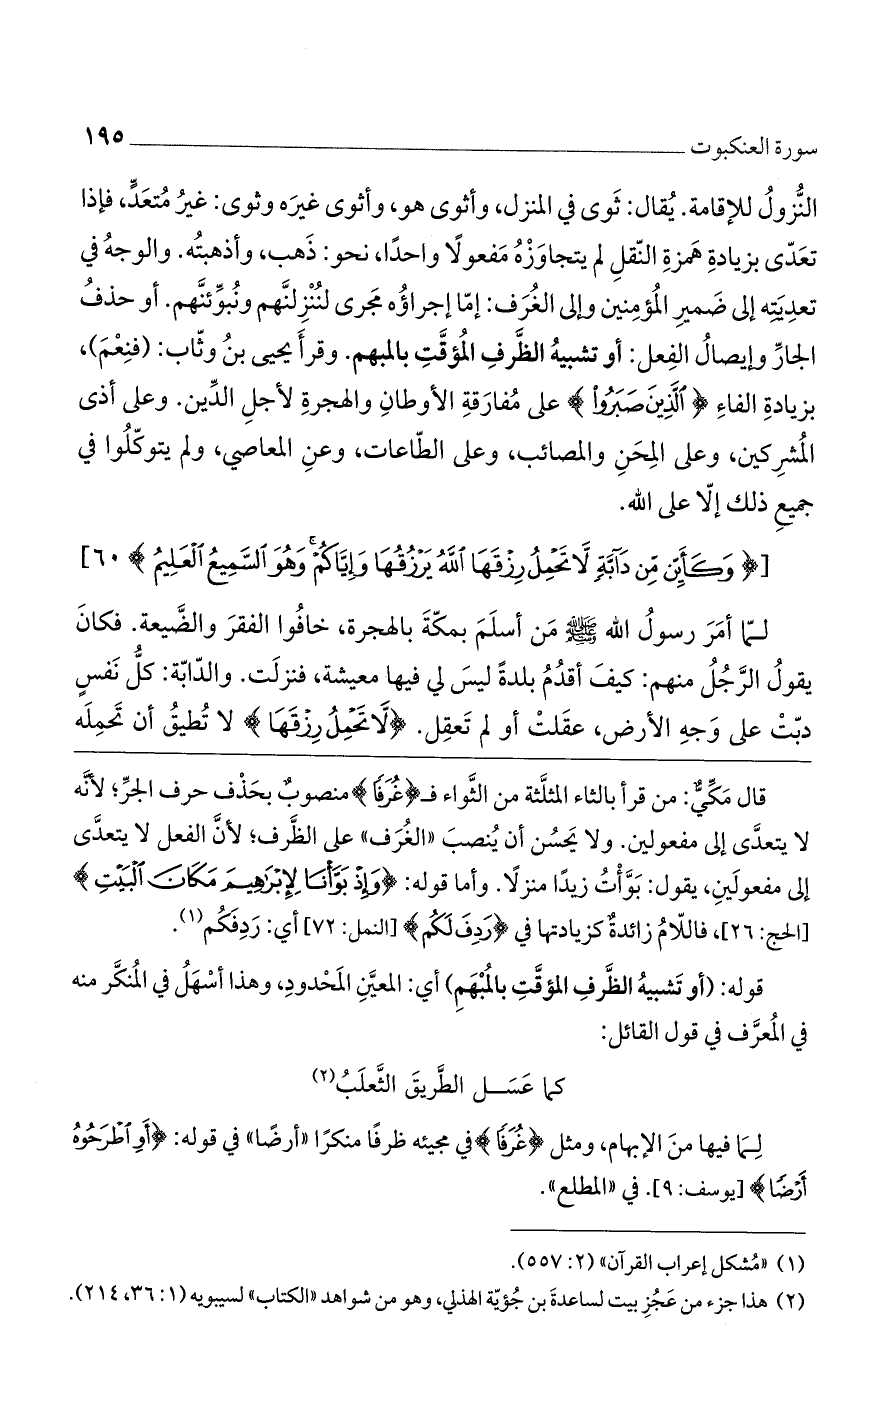 سورة العنكبوت ــــــــــــــــــــ ١٩٥
النُّزولُ للإقامة. يُقال: ثَوى في المنزل، وأثوى هو، وأثوى غيرَه وثوى: غيرُ مُتعَدٍّ، فإذا
تعَدّى بزيادةِ هَمزةِ النّقلِ لم يتجاوَزْهُ مَفعولًا واحدًا، نحو: ذَهب، وأذهبتُه. والوجهُ في
تعدِيَتِه إلى ضَميرِ المُؤمنين وإلى الغُرَف: إمّا إجراؤُه مَجرى لنُنْزِلنَّهم ونُبوِّئنَّهم. أو حذفُ
الجارِّ وإيصالُ الفِعل: أو تشبيهُ الظَّرفِ المُؤقَّتِ بالمبهم. وقرأ يحيى بنُ وثّاب: (فنِعْمَ)،
بزيادةِ الفاءِ ﴿ ٱلَّذِينَ صَبَرُواْ ﴾ على مُفارَقةِ الأوطانِ والهجرةِ لأجلِ الدِّين. وعلى أذى
المُشرِكين، وعلى المِحَنِ والمصائب، وعلى الطّاعات، وعنِ المعاصي، ولم يتوكّلُوا في
جميعِ ذلك إلّا على الله.
[﴿ وَكَأَيِّن مِّن دَآبَّةٍ لَّا تَحْمِلُ رِزْقَهَا ٱللَّهُ يَرْزُقُهَا وَإِيَّاكُمْ ۚ وَهُوَ ٱلسَّمِيعُ ٱلْعَلِيمُ ﴾ ٦٠]
لـمّا أمَرَ رسولُ الله ﷺ مَن أسلَمَ بمكّةَ بالهجرة، خافُوا الفقرَ والضَّيعة. فكانَ
يقولُ الرَّجُلُ منهم: كيفَ أقدُمُ بلدةً ليسَ لي فيها معيشة، فنزلَت. والدّابّة: كلُّ نَفسٍ
دبّتْ على وَجهِ الأرض، عقَلتْ أو لم تَعقِل. ﴿لَّا تَحْمِلُ رِزْقَهَا ﴾ لا تُطيقُ أن تَحمِلَه
قال مَكِّيٌّ: من قرأ بالثاء المثلَّثة من الثَّواء فـ﴿غُرَفًا﴾ منصوبٌ بحَذْف حرف الجرِّ؛ لأنَّه
لا يتعدَّى إلى مفعولين. ولا يَحسُن أن يُنصبَ «الغُرَف» على الظَّرف؛ لأنَّ الفعل لا يتعدَّى
إلى مفعولَينِ، يقول: بَوَّأْتُ زيدًا منزلًا. وأما قوله: ﴿وَإِذْ بَوَّأْنَا لِإِبْرَٰهِيمَ مَكَانَ ٱلْبَيْتِ ﴾
[الحج: ٢٦]، فاللّامُ زائدةٌ كزيادتها في ﴿رَدِفَ لَكُم﴾ [النمل: ٧٢] أي: رَدِفَكُم(١).
قوله: (أو تَشبيهُ الظَّرفِ المؤقَّتِ بالمُبْهَمِ) أي: المعيَّنِ المَحْدودِ، وهذا أسْهَلُ في المُنكَّر منه
في المُعرَّف في قول القائل:
كما عَسَــل الطَّريقَ الثَّعلَبُ(٢)
لِمَا فيها منَ الإبهام، ومثل ﴿غُرَفًا﴾ في مجيئه ظرفًا منكرًا «أرضًا» في قوله: ﴿أَوِ ٱطْرَحُوهُ
أَرْضًا﴾ [يوسف: ٩]. في «المطلع».
(١) «مُشكل إعراب القرآن» (٢: ٥٥٧).
(٢) هذا جزء من عَجُزِ بيت لساعدةَ بن جُؤيّة الهذلي، وهو من شواهد «الكتاب» لسيبويه (١: ٣٦، ٢١٤).